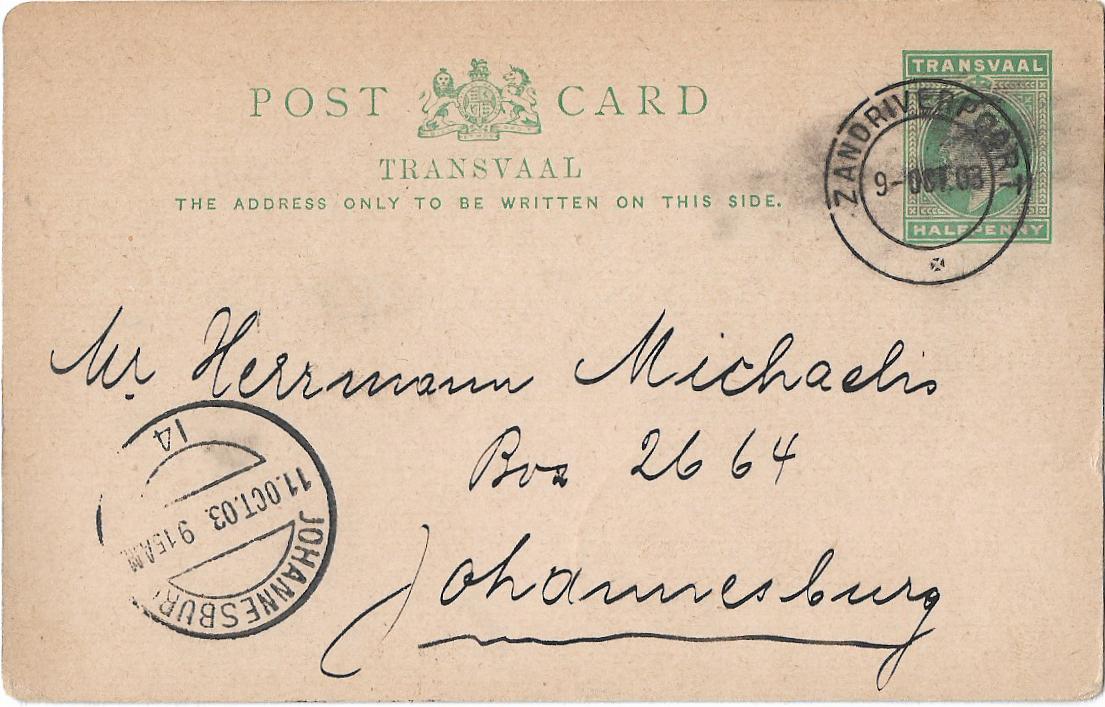 POST CARD
TRANSVAAL
THE ADDRESS ONLY TO BE WRITTEN ON THIS SIDE.
TRANSVAAL
HALFPENNY
ZANDRIVERPOORT
9-OCT.03
Mr. Herrmann Michaelis
Box 2664
Johannesburg
14
11.OCT.03. 9 15AM
JOHANNESBUR